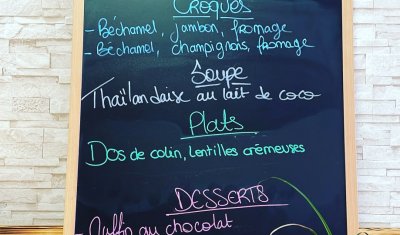 Croques
- Béchamel, jambon, fromage
- Béchamel, champignons, fromage
Soupe
Thaïlandaise au lait de coco
Plats
Dos de colin, lentilles crémeuses
DESSERTS
- Muffin au chocolat